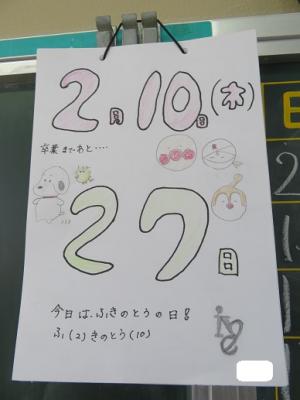 2月10日(木)
卒業まであと‥‥
27日
今日は、ふきのとうの日!
ふ(2)きのとう(10)